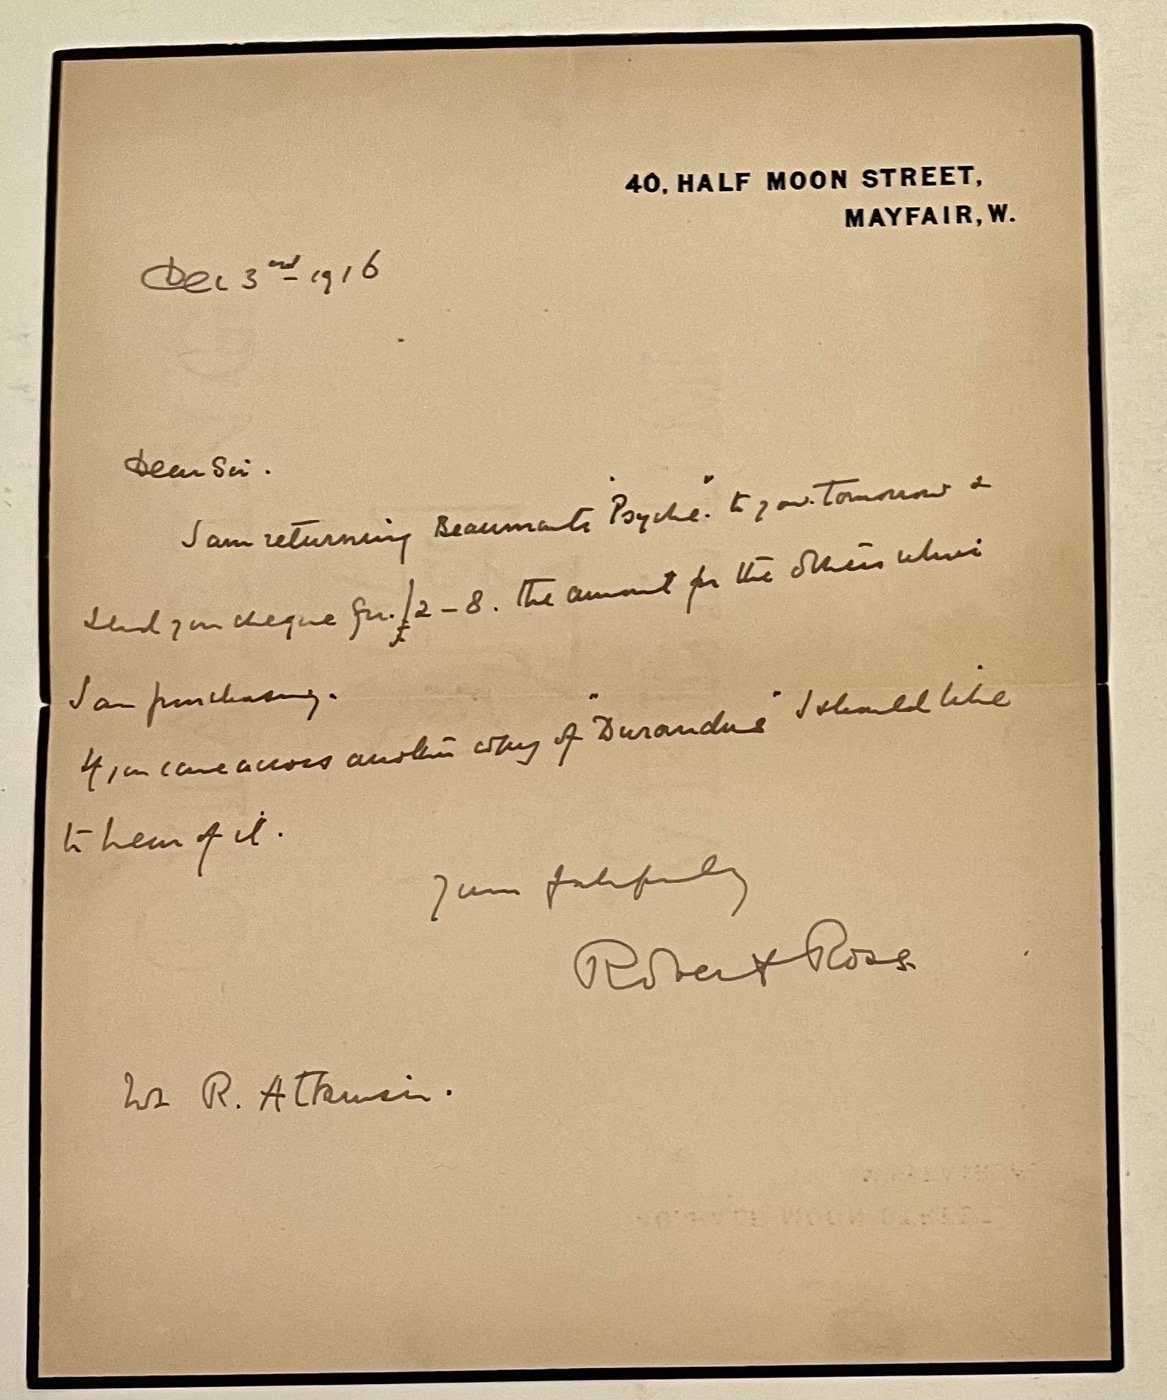 40, HALF MOON STREET,
MAYFAIR, W.
Dec 3rd 1916
Dear Sir.
I am returning Beaumont's "Psyche". to you tomorrow &
send you cheque for £2-8. the amount for the others which
I am purchasing.
If you come across another copy of "Durandus" I should like
to hear of it.
Yours faithfully
Robert Ross
R. Atkinson.